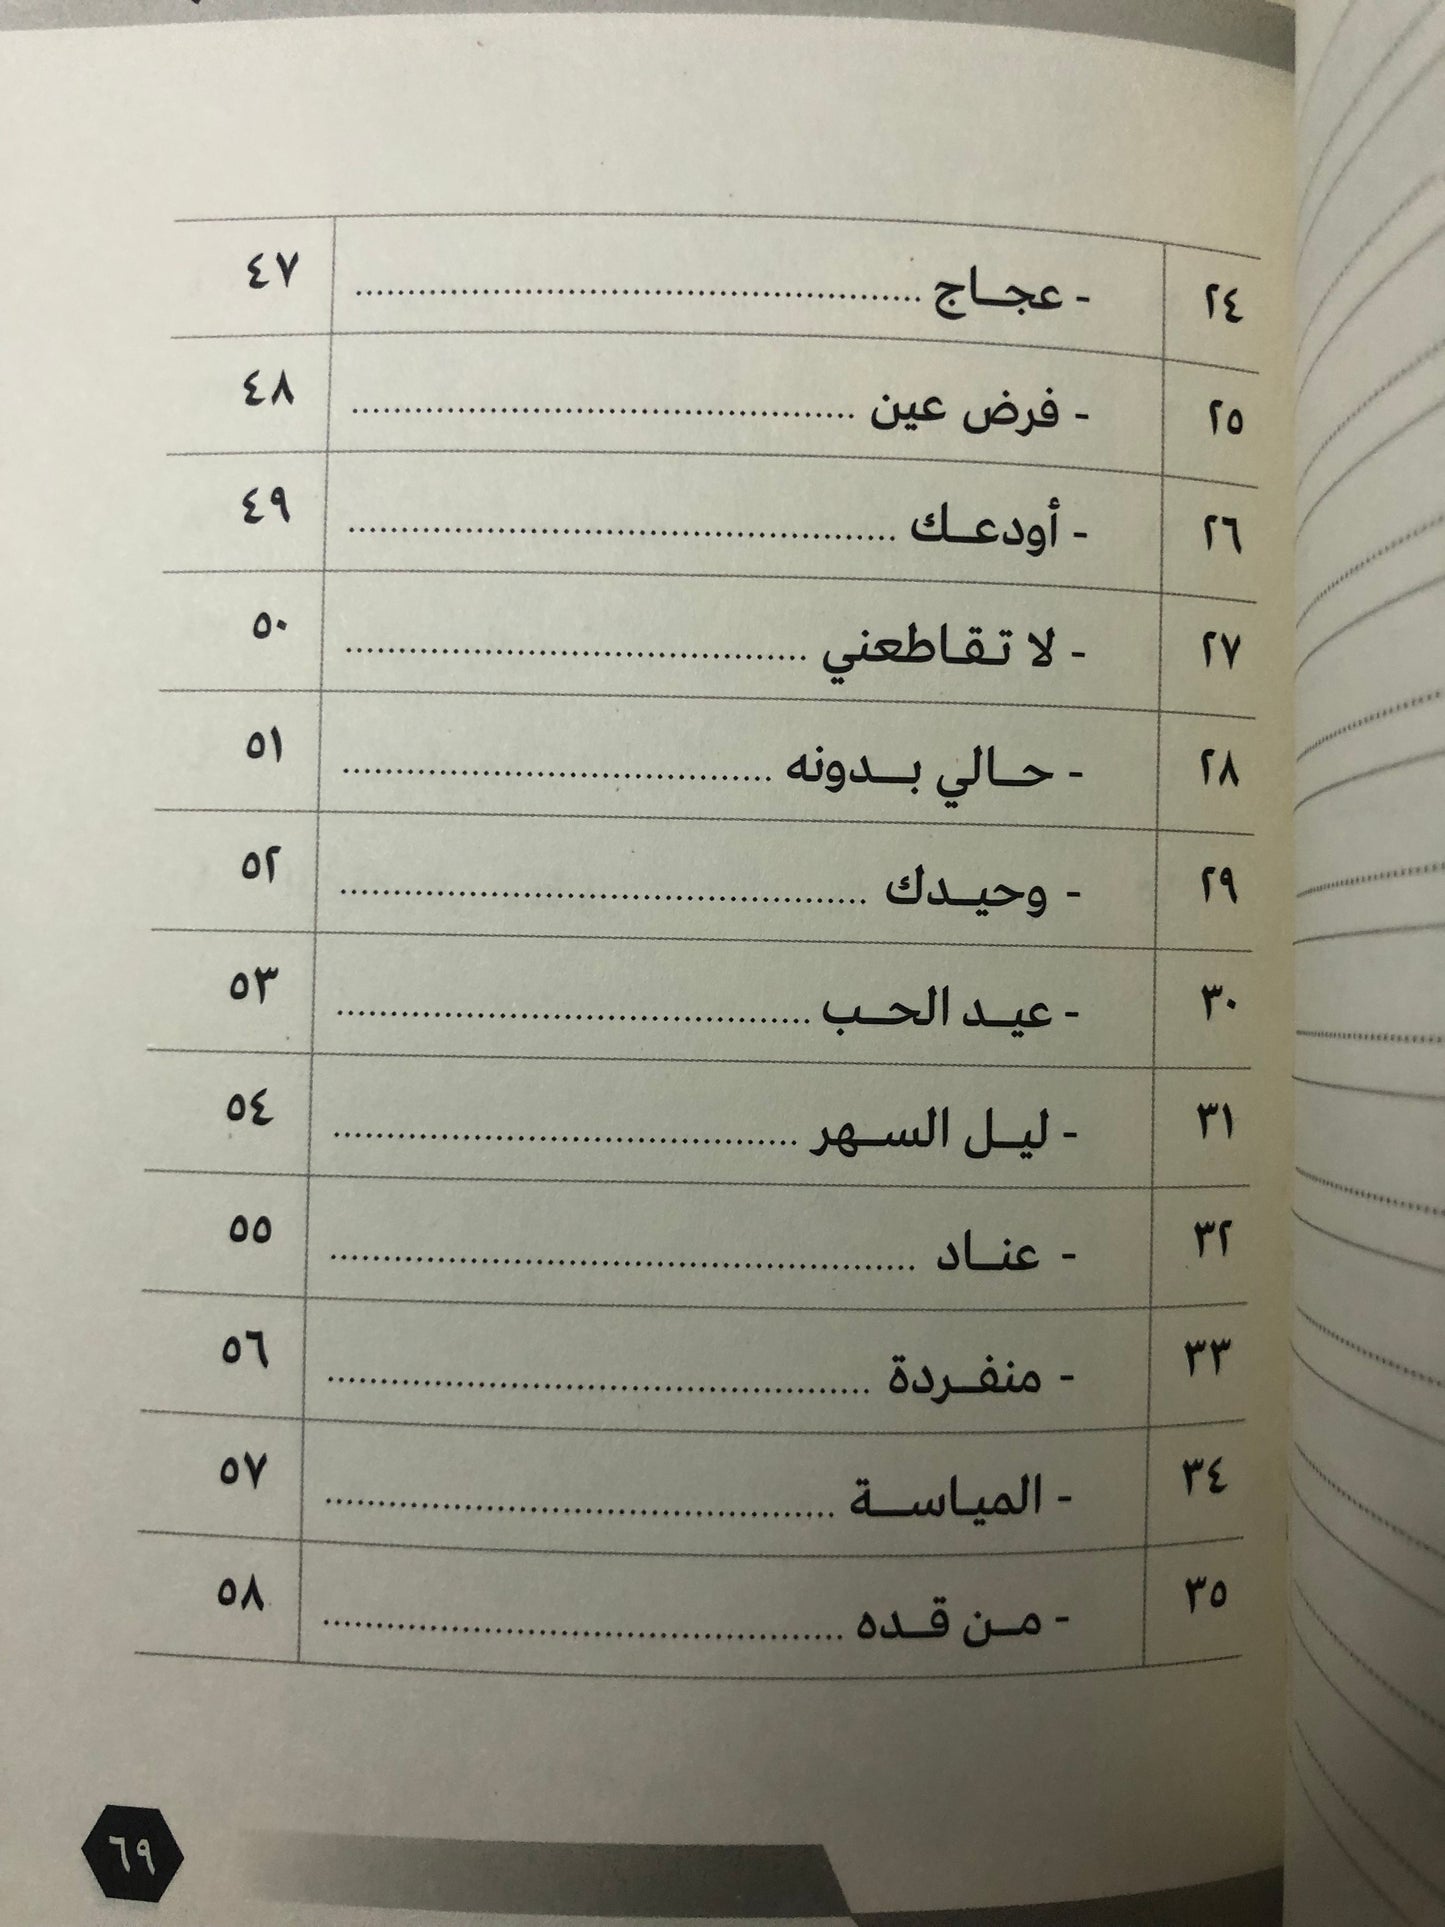 ٢٤ - عجاج ........................................................ ٤٧
٢٥ - فرض عين .................................................. ٤٨
٢٦ - أودعك ...................................................... ٤٩
٢٧ - لا تقاطعني .............................................. ٥٠
٢٨ - حالي بدونه ........................................... ٥١
٢٩ - وحيدك .................................................... ٥٢
٣٠ - عيد الحب ............................................... ٥٣
٣١ - ليل السهر .............................................. ٥٤
٣٢ - عناد .......................................................... ٥٥
٣٣ - منفردة ...................................................... ٥٦
٣٤ - المياسة ................................................... ٥٧
٣٥ - من قده .................................................... ٥٨
٦٩